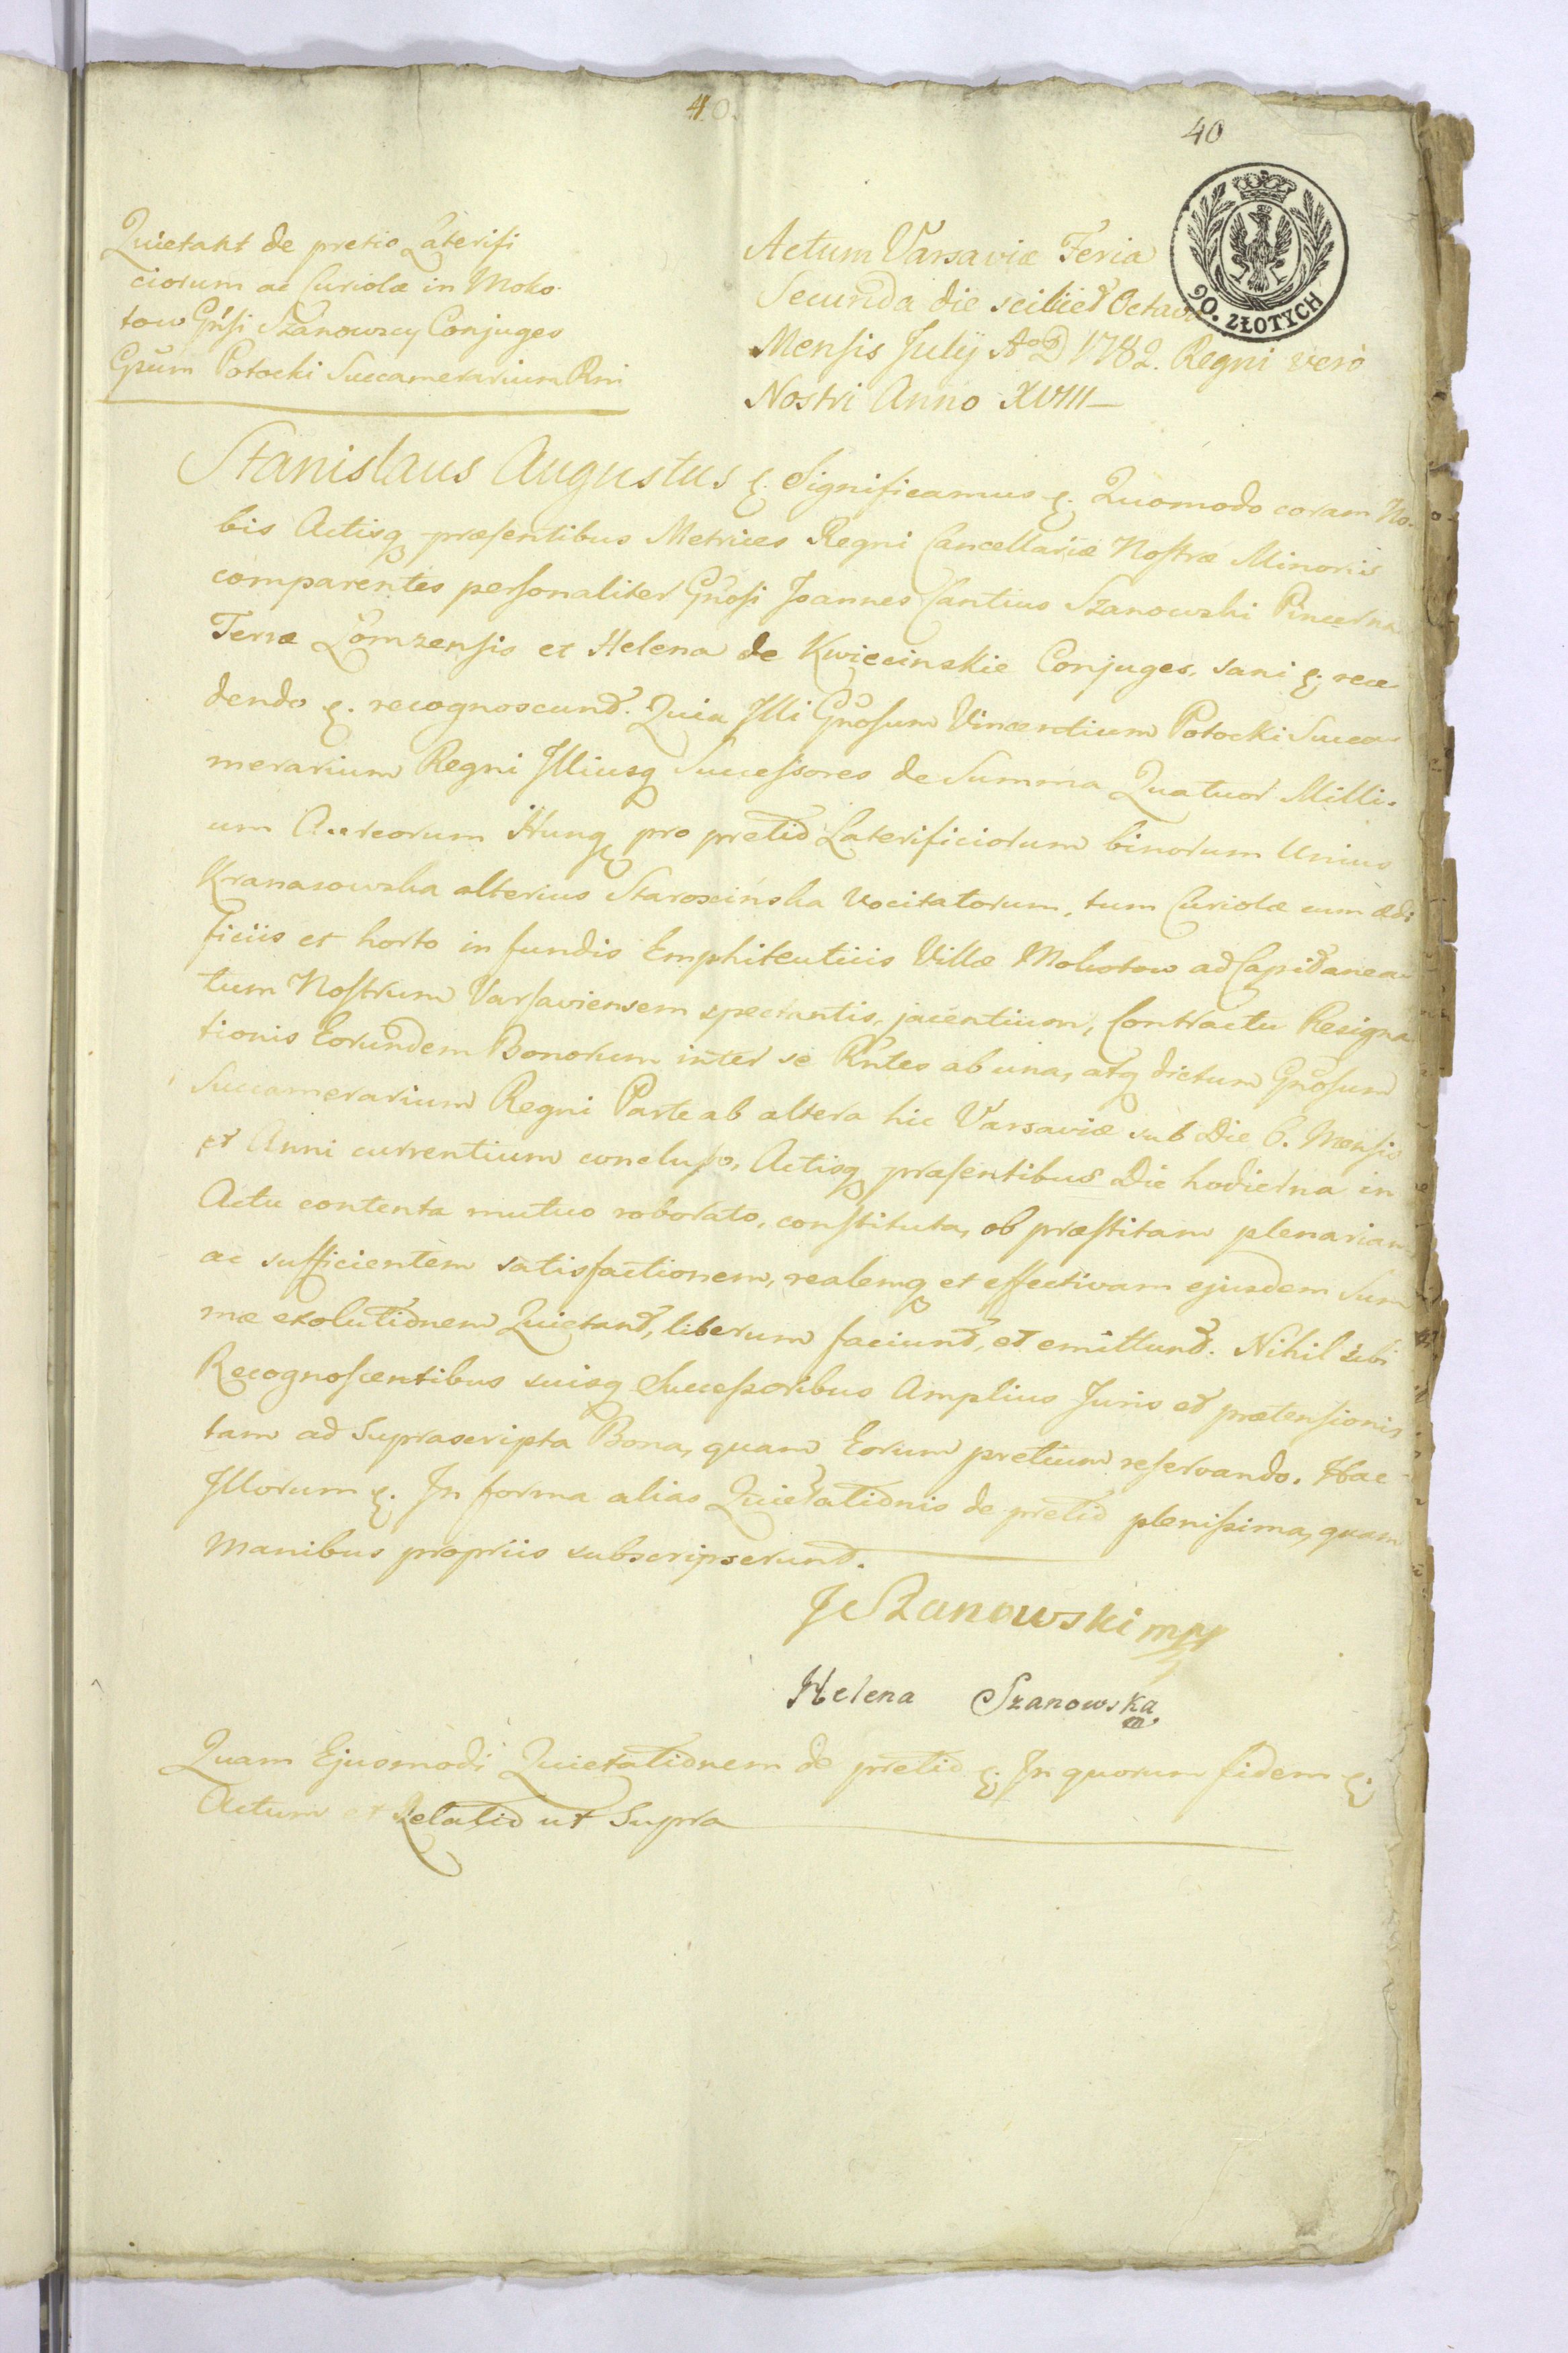 40.
40
90. ZŁOTYCH
Quietant de pretio Laterifi
ciorum ac Curiolæ in Moko
tow Gnsi Szanowscy Conjuges
Gsum Potocki Succamerarium Rni
Actum Varsaviæ Feria
Secunda die scilicet Octava
Mensis Julij Ao D 1782. Regni vero
Nostri Anno XVIII
Stanislaus Augustus &. Significamus &. Quomodo coram No-
bis Actisq præsentibus Metrices Regni Cancellariæ Nostræ Minoris
comparentes personaliter Gnosi Joannes Cantius Szanowski Pincerna
Terræ Lomzensis et Helena de Kwiecinskie Conjuges, sani &; rece
dendo &. recognoscunt. Quia Illi Gnosum Vincentium Potocki Succa-
merarium Regni Illiusq Successores de Summa Quatuor Milli-
um Aureorum Hung pro pretio Laterificiorum binorum Unius
Kranasowska alterius Starościńska vocitatorum, tum Curiolæ cum ædi
ficiis et horto in fundis Emphiteuticis Villæ Mokotow ad Capitanea-
tum Nostrum Varsaviensem spectantis, jacentium, Contractu Resigna
tionis Eorundem Bonorum inter se Rntes ab una, atq dictum Gnosum
Succamerarium Regni Parte ab altera hic Varsaviæ sub Die 6. Mensis
et Anni currentium concluso, Actisq præsentibus Die hodierna in
Actu contenta mutuo roborato, constituta, ob præstitam plenariam
ac sufficientem satisfactionem, realemq et effectivam ejusdem Sum
mæ exolutionem Quietant, liberum faciunt, et emittunt. Nihil sibi
Recognoscentibus suisq Successoribus Amplius Juris et prætensionis
tam ad Suprascripta Bona, quam Eorum pretium reservando. Hac
Illorum &. In forma alias Quietationis de pretio plenissima, quam
Manibus propriis subscripserunt.
JC Szanowski mp
Helena Szanowska
Quam Ejusmodi Quietationem de pretio &; In quorum fidem &;
Actum et Relatio ut Supra